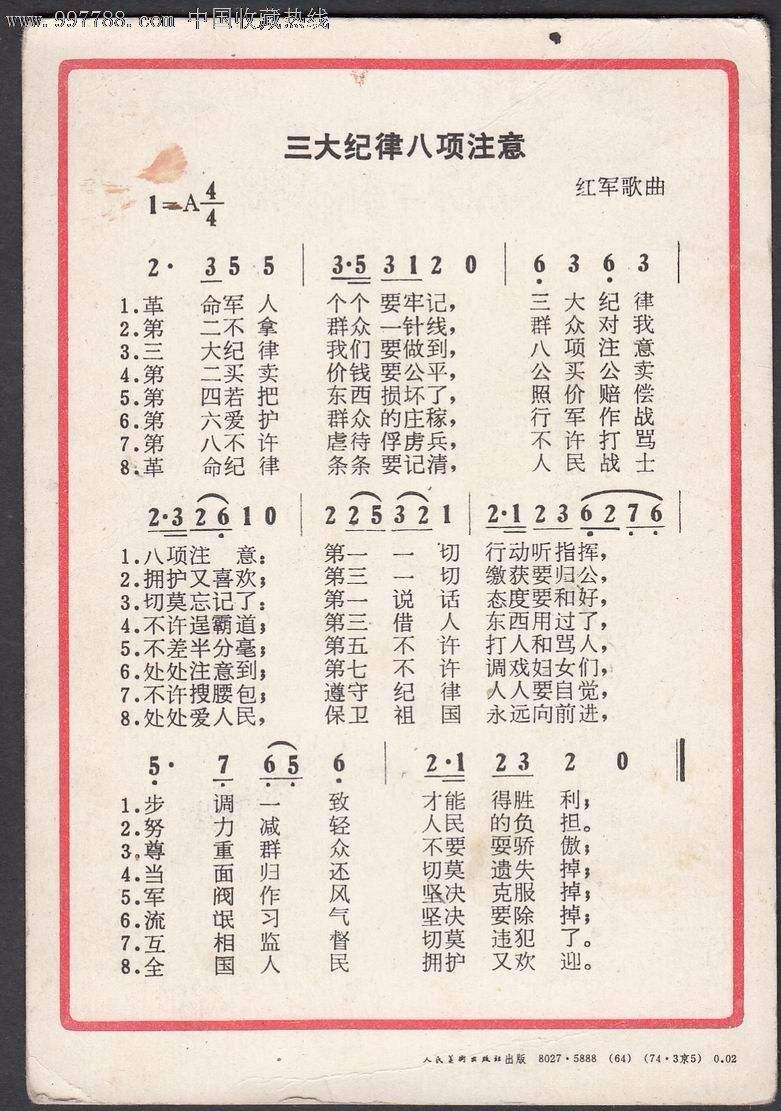 www.997788.com 中国收藏热线
三大纪律八项注意
1=A 4/4
红军歌曲
2· 3 5 5 | 3·5 3 1 2 0 | 6 3 6 3 |
1.革 命军 人 个个 要牢记, 三 大 纪 律
2.第 二不 拿 群众 一针线, 群 众 对 我
3.三 大纪 律 我们 要做到, 八 项 注 意
4.第 二买 卖 价钱 要公平, 公 买 公 卖
5.第 四若 把 东西 损坏了, 照 价 赔 偿
6.第 六爱 护 群众 的庄稼, 行 军 作 战
7.第 八不 许 虐待 俘虏兵, 不 许 打 骂
8.革 命纪 律 条条 要记清, 人 民 战 士
2·3 2 6 1 0 | 2 2 5 3 2 1 | 2·1 2 3 6 2 7 6 |
1.八项注 意; 第一 一 切 行动听指挥,
2.拥护又喜欢; 第三 一 切 缴获要归公,
3.切莫忘记了: 第一 说 话 态度要和好,
4.不许逞霸道; 第三 借 人 东西用过了,
5.不差半分毫; 第五 不 许 打人和骂人,
6.处处注意到; 第七 不 许 调戏妇女们,
7.不许搜腰包; 遵守 纪 律 人人要自觉,
8.处处爱人民, 保卫 祖 国 永远向前进,
5· 7 6 5 6 | 2·1 2 3 2 0
1.步 调 一 致 才能 得胜 利;
2.努 力 减 轻 人民 的负 担。
3.尊 重 群 众 不要 耍骄 傲;
4.当 面 归 还 切莫 遗失 掉;
5.军 阀 作 风 坚决 克服 掉;
6.流 氓 习 气 坚决 要除 掉;
7.互 相 监 督 切莫 违犯 了。
8.全 国 人 民 拥护 又欢 迎。
人民美术出版社出版 8027·5888 (64) (74·3京5) 0.02